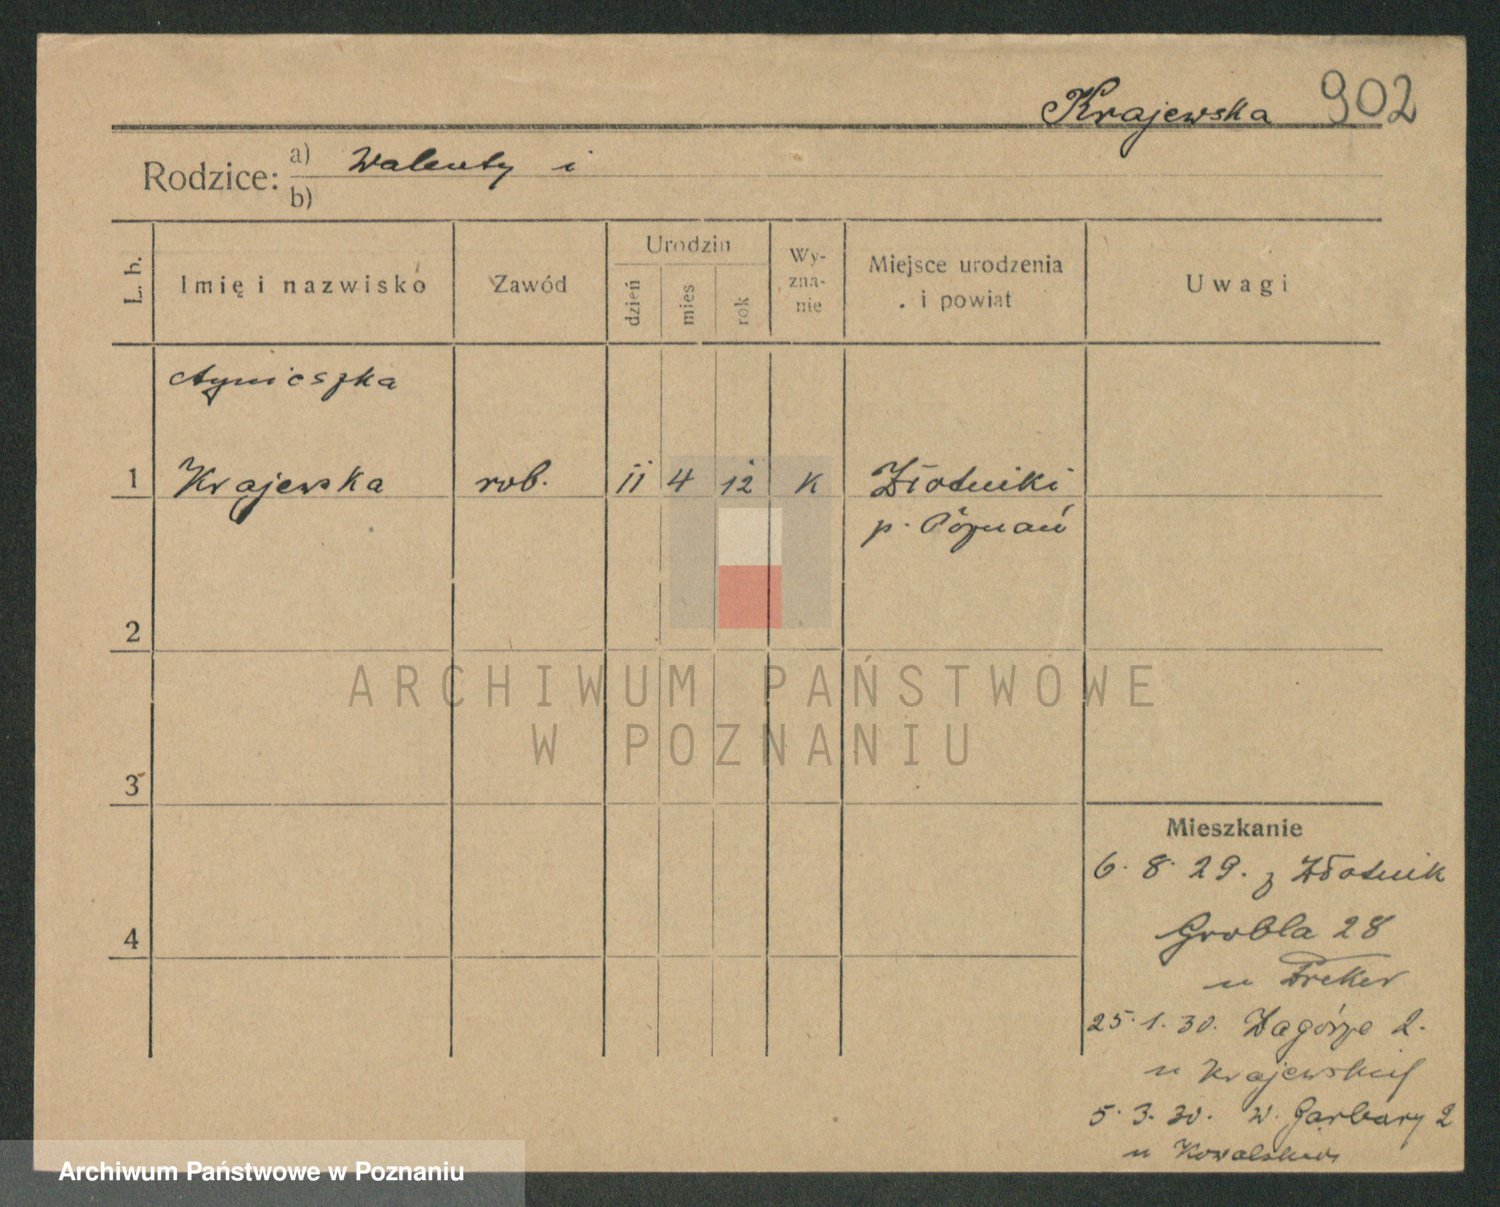 Krajewska 902
Rodzice: a) Walenty i
b)
L. b. Imię i nazwisko Zawód Urodzin dzień mies rok Wy-zna-nie Miejsce urodzenia i powiat Uwagi
Agnieszka
1 Krajewska rob. 11 4 12 K Złotniki
p. Poznań
2
ARCHIWUM PAŃSTWOWE
W POZNANIU
3
Mieszkanie
6. 8. 29. z Złotnik
4
Grobla 28
u
25. 1. 30. Zagórze 2.
u Krajewskich
5. 3. 30. W. Garbary 2
u Kowalskich
Archiwum Państwowe w Poznaniu